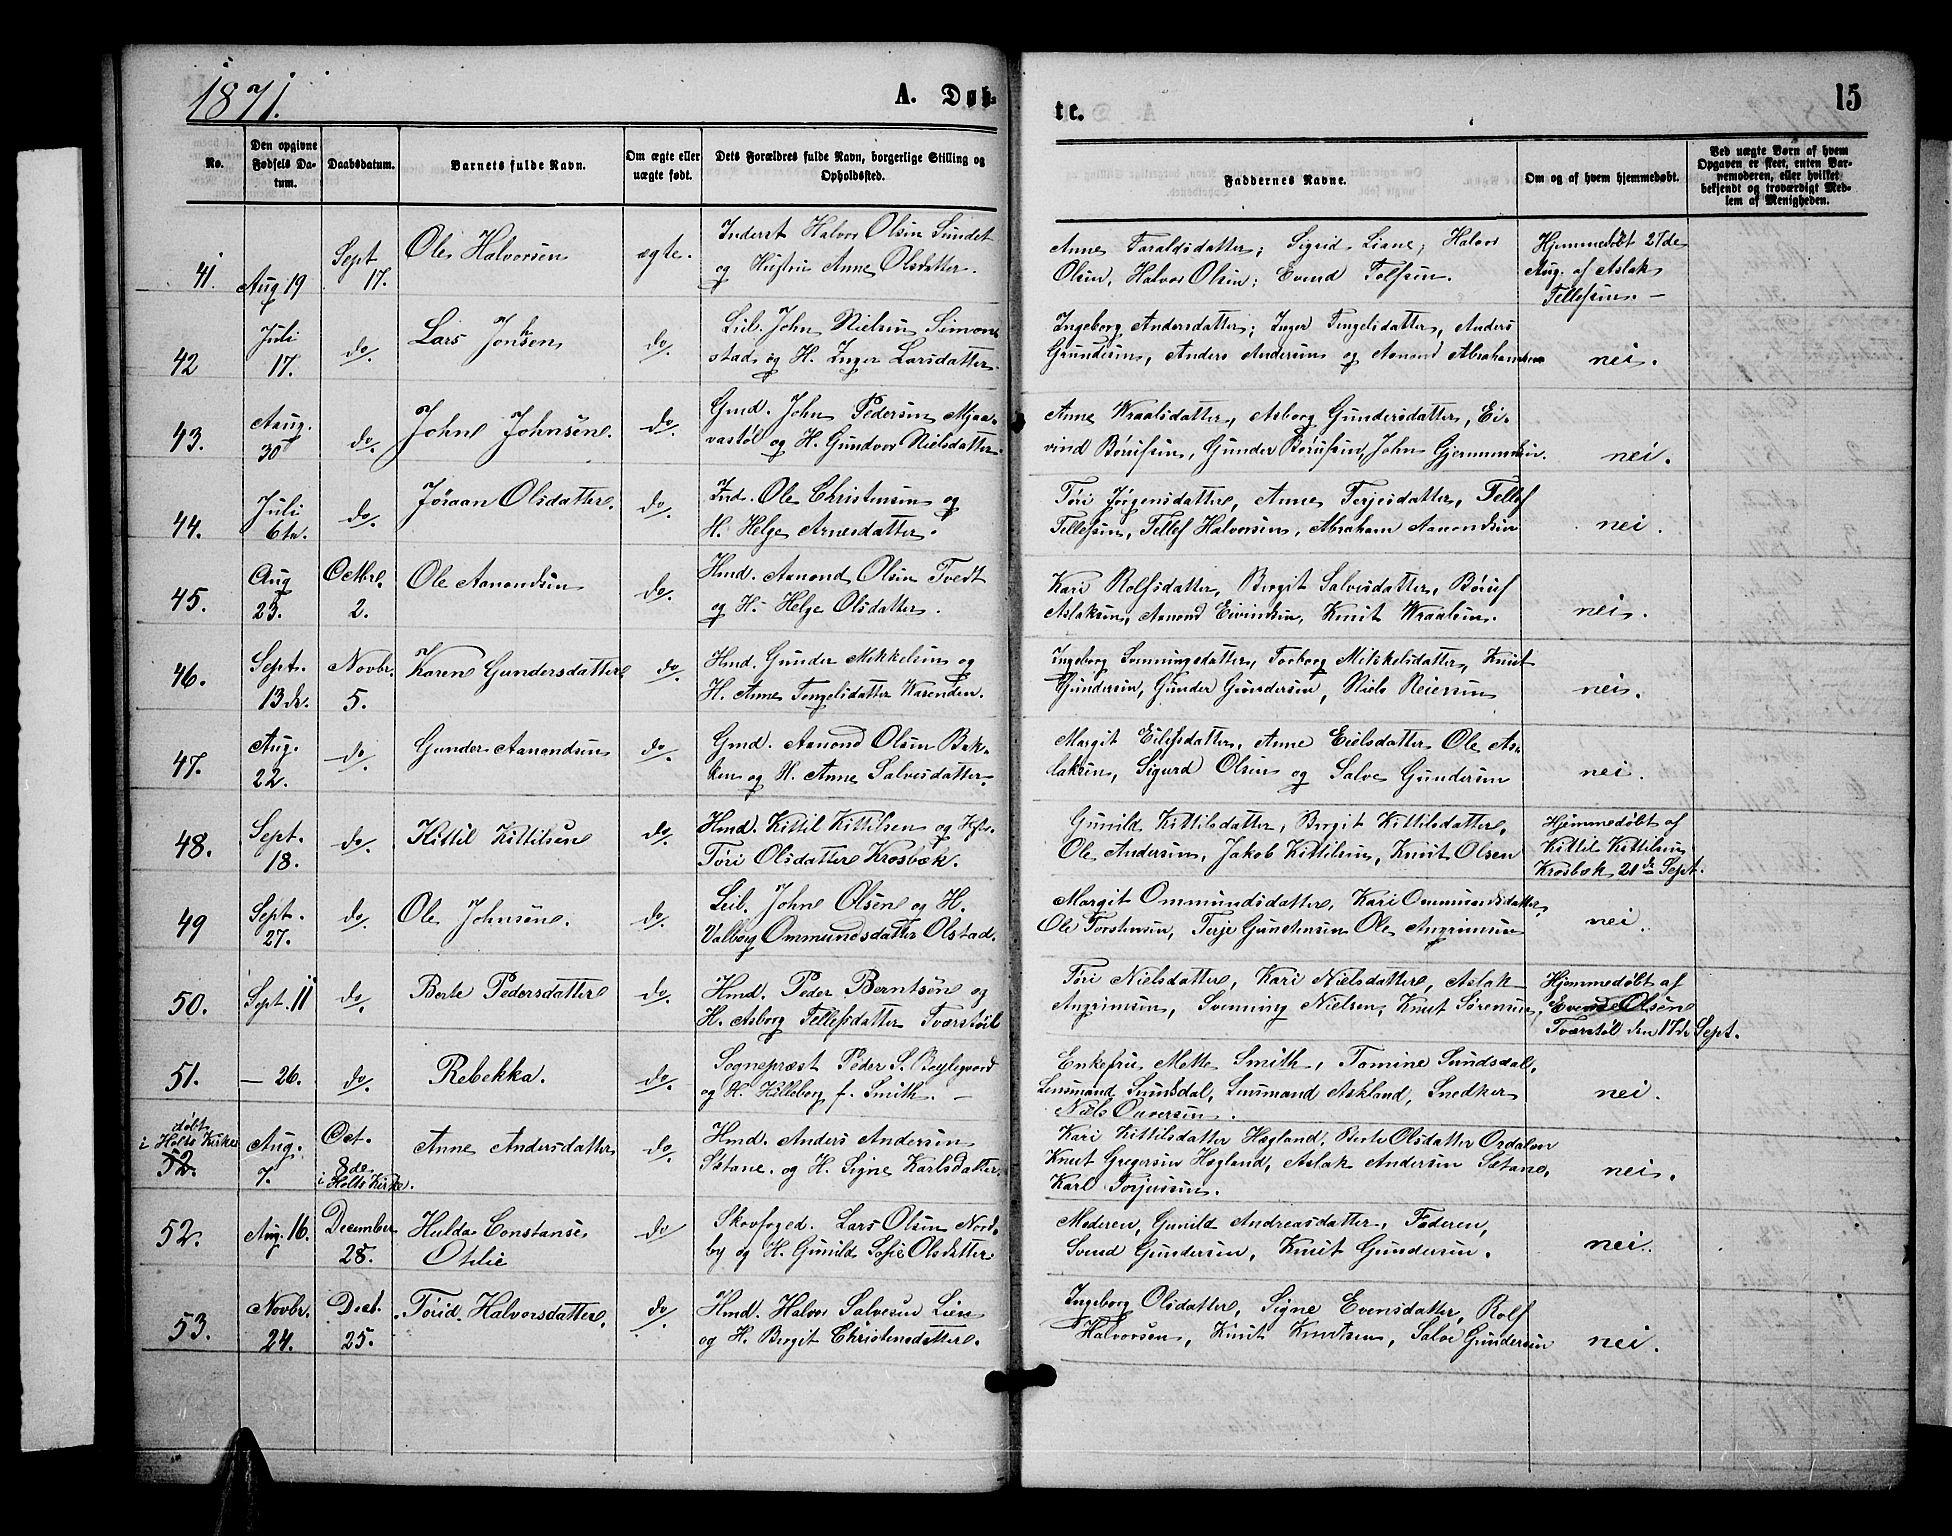 1871.
A. Døb-
te.
15
No.
Den opgivne Fødsels Da-tum.
Daabsdatum.
Barnets fulde Navn.
Om ægte eller uægte født.
Dets Forældres fulde Navn, borgerlige Stilling og Opholdssted.
Faddernes Navne.
Om og af hvem hjemmedøbt.
Ved uægte Børn af hvem Opgaven er skeet, enten Bar-nemoderen, eller hvilket bekjendt og troværdigt Med-lem af Menigheden.
41. Aug 19 Sept 17. Ole Halvorsen ægte. Inderst Halvor Olsen Sundet
og Hustru Anne Olsdatter.
Anne Taraldsdatter; Sigrid Liane; Halvor
Olsen, Halvor Olsen; Evend Tolfsen.
Hjemmedøbt 27de
Aug. af Aslak
Tellefsen. —
42 Juli 17. do. Lars Johnsen do. Leil. John Nielsen Simon-
stad og H. Inger Larsdatter.
Ingeborg Andersdatter; Inger Tengelsdatter, Anders
Gundersen, Anders Andersen og Aanond Abrahamsen
nei.
43. Aaug. 30 do. Johne Johnsøne. do. Gmd. John Pedersen Mjaa-
vastøl og H. Gundvor Nielsdatter.
Anne Wraalsdatter, Asborg Gundersdatter, Ei-
vind Børufsen, Gunder Børufsen, John Gjermundsen.
nei.
44. Juli 6te. do. Jøraan Olsdatter. do. Ind. Ole Christensen og
H. Helge Arnesdatter.
Tøri Jørgensdatter, Anne Terjesdatter, Tellef
Tellefsen, Tellef Halvorsen, Abraham Aanondsen
nei.
45. Aug 23. Octbre. 2. Ole Aanondsen do. Hmd. Aanond Olsen Tvedt
og H. Helge Olsdatter.
Kari Rolfsdatter, Birgit Salvesdatter, Børuf
Aslaksen, Aanond Eivindsen, Knut Wraalsen.
nei.
46. Sept. 13de. Novbr. 5. Karen Gundersdatter do. Hmd. Gunder Mikkelsen og
H. Anne Tengelsdatter Warenden.
Ingeborg Svenningsdatter, Torborg Mikkelsdatter, Knut
Gundersen, Gunder Gundersen, Niels Reiersen
nei.
47. Aug. 22. do. Gunder Aanondsen do. Gmd. Aanond Olsen Bak-
ken og H. Anne Salvesdatter.
Margit Eilefsdatter, Anne Eielsdatter Ole As-
laksen, Sigurd Olsen og Salve Gundersen
nei.
48. Sept. 18. do. Kittil Kittilsøn do. Hmd. Kittil Kittelsen og Hstr.
Tøri Olsdatter Krosbøk.
Gunild Kittilsdatter, Birgit Kittilsdatter,
Ole Andersen, Jakob Kittilsen, Knut Olsen
Hjemmedøbt af
Kittil Kittilsen
Krosbøk 21de Sept.
49 Sept. 27. do. Ole Johnsøne. do. Leil. Johne Olsøne og H.
Valborg Ommundsdatter Olstad.
Margit Ommundsdatter, Kari Ommundsdatter,
Ole Torstensen, Terje Gundersen Ole Angrimsen
nei.
50. Sept. 11 do. Berte Pedersdatter do. Hmd. Peder Berntsøn og
H. Asborg Tellefsdatter Tværstøil
Tøri Nielsdatter, Kari Nielsdatter, Aslak
Angrimsen, Svenning Nielsen, Knut Sørensen,
Hjemmedøbt af
Evend Olsøne
Tværstøl den 17de Sept.
51. — 26. do. Rebekka. do. Sognepræst Peder S. Beylegaard
og H. Hilleborg f. Smith. —
Enkefru Mette Smith, Tomine Sundsdal,
Lensmand Sundsdal, Lensmand Askland, Snedker
Niels Onversen.
nei.
døbt
i Holts Kirke
52. Aug. 7. Oct. 8de i Holts Kirke. Anne Andersdatter do. Hmd. Anders Andersen
Sætane. og H. Signe Karlsdatter.
Kari Kittilsdatter Hægland, Berte Olsdatter Ordalen
Knut Gregersen Hægland, Aslak Andersen Sætane,
Karl Torjussen.
nei.
52. Aug. 16. December 28. Hulda Constanse
Otilie do Skovfoged. Lars Olsen Nord-
by og H. Gunild Sofie Olsdatter
Moderen, Gunild Andreasdatter, Faderen,
Svend Gundersen, Knut Gundersen.
nei.
53. Novbr. 24. Decb. 25. Tørid Halvorsdatter, do Hmd. Halvor Salvesen Lien
og H. Birgit Christensdatter.
Ingeborg Olsdatter, Signe Evensdatter, Rolf
Halvorsen, Knut Knutsen, Salve Gundersen
nei.